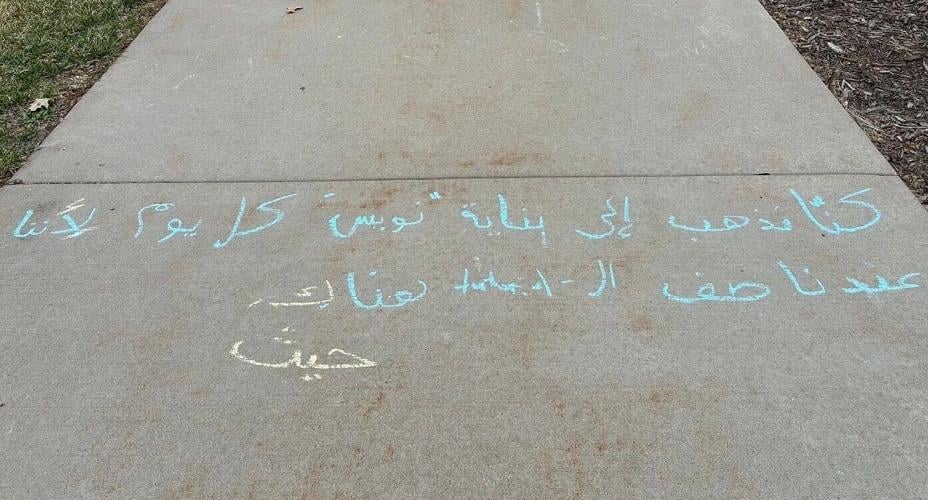 كنّا نذهب إلى بناية "نويس" كل يوم لأننا
عندنا صف الـ هناك
حيث